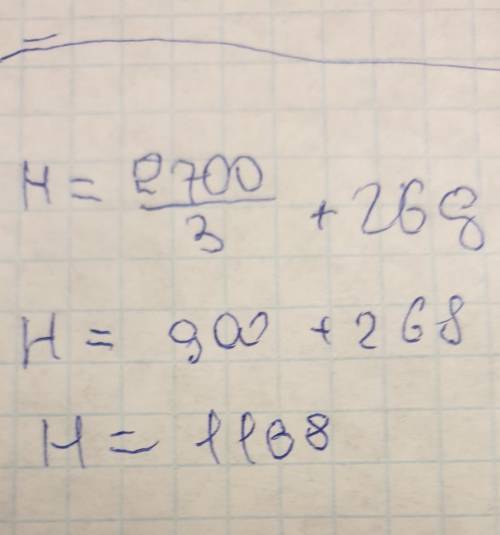 H = 2700/3 + 268
H = 900 + 268
H = 1138